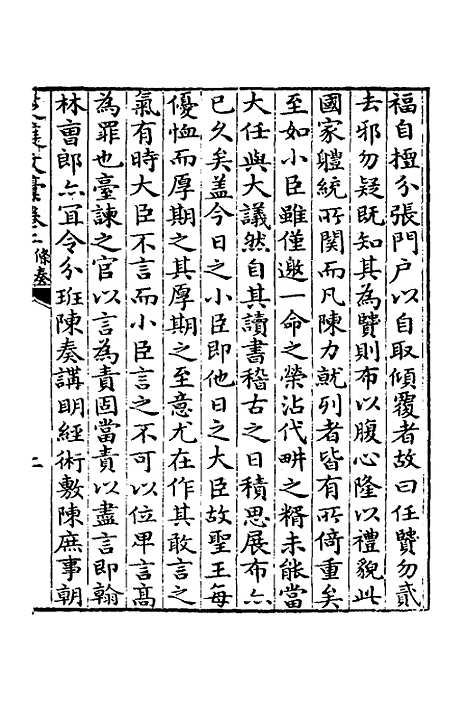 福自擅分張門户以自取傾覆者故曰任贒勿貳
去邪勿疑既知其為贒則布以腹心隆以禮貌此
國家軆統所関而凡陳力就列者皆有所倚重矣
至如小臣雖僅邀一命之榮沾代畊之糈未能當
大任與大議然自其讀書稽古之日積思展布亦
已久矣盖今日之小臣即他日之大臣故聖王每
優恤而厚期之其厚期之至意尤在作其敢言之
氣有時大臣不言而小臣言之不可以位卑言髙
為罪也臺諫之官以言為責固當責以盡言即翰
林曺郎亦宜令分班陳奏講明經術敷陳庶事朝
文稾卷二 條奏 二